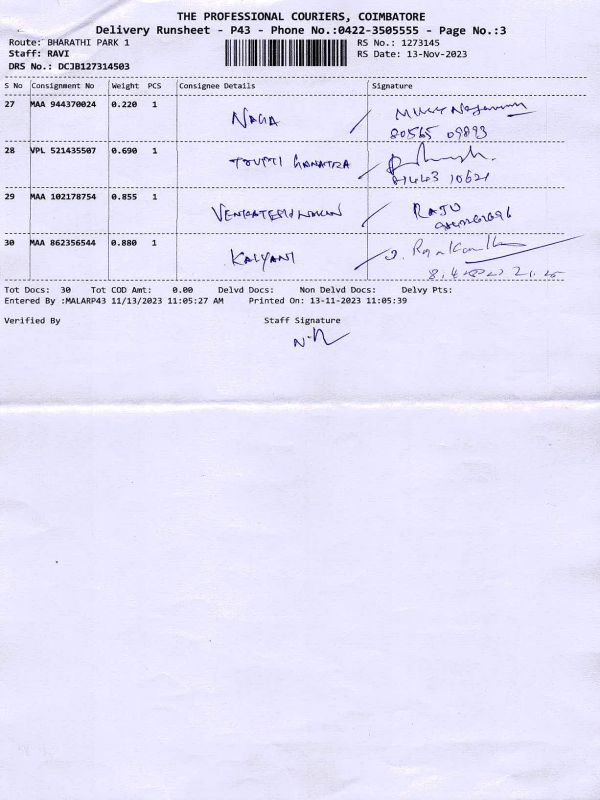 THE PROFESSIONAL COURIERS, COIMBATORE
Delivery Runsheet - P43 - Phone No.:0422-3505555 - Page No.:3
Route: BHARATHI PARK 1 RS No.: 1273145
Staff: RAVI RS Date: 13-Nov-2023
DRS No.: DCJB127314503
S No Consignment No Weight PCS Consignee Details Signature
27 MAA 944370024 0.220 1 NAGA
80565 09893
28 VPL 521435507 0.690 1
81443 10621
29 MAA 102178754 0.855 1 RAJU
30 MAA 862356544 0.880 1 KALYANI
Tot Docs: 30 Tot COD Amt: 0.00 Delvd Docs: Non Delvd Docs: Delvy Pts:
Entered By :MALARP43 11/13/2023 11:05:27 AM Printed On: 13-11-2023 11:05:39
Verified By Staff Signature